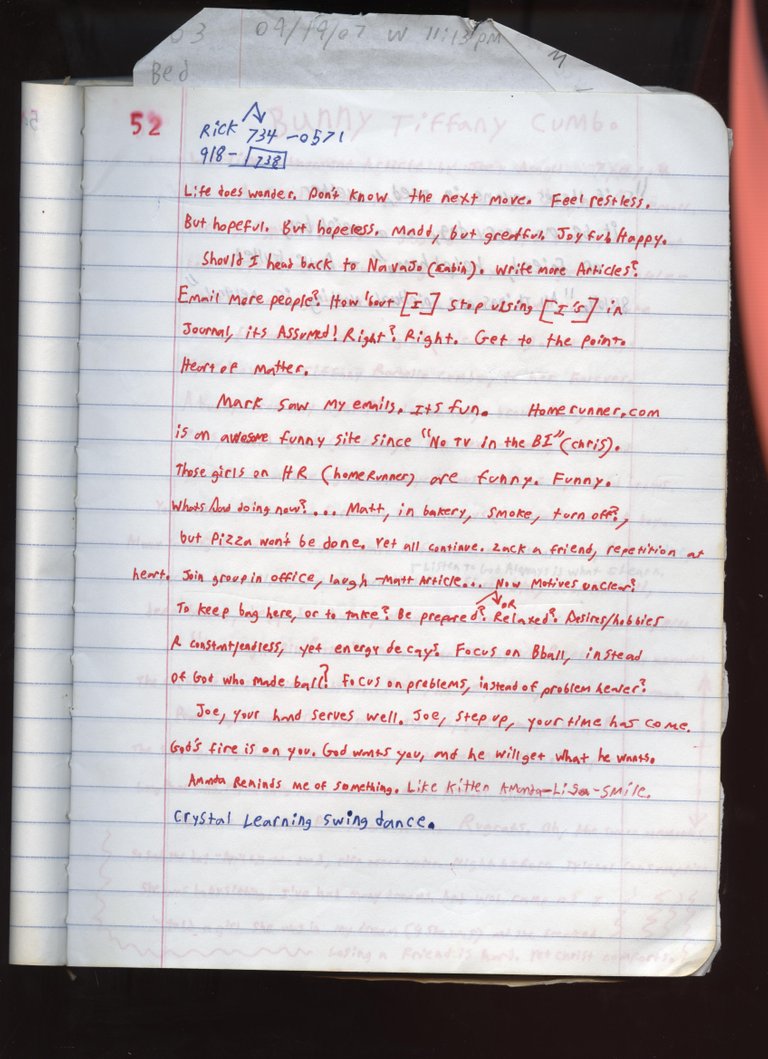 03 09/19/07 W 11:13pm
Bed
52
Bunny Tiffany Cumbo
Rick 734-0571
918- 738
Life does wonder. Don't know the next move. Feel restless.
But hopeful. But hopeless. Madd, but greatful. Joyful. Happy.
Should I head back to Navajo (cabin). Write more Articles?
Email more people? How 'bout [I] stop using [I's] in
Journal, its Assumed! Right? Right. Get to the point.
Heart of matter.
Mark saw my emails. Its fun. Homerunner.com
is an awesome funny site since "No TV in the BI" (chris).
Those girls on HR (homeRunner) are funny. Funny.
Whats Dad doing now?... Matt, in bakery, smoke, turn off?,
but Pizza won't be done. Yet all continue. Zack a friend, repetition at
heart. Join group in office, laugh -Matt Article... Now Motives unclear?
To keep bag here, or to take? Be prepared? OR Relaxed? Desires/hobbies
R constant/endless, yet energy decays? Focus on Bball, instead
of God who made ball? Focus on problems, instead of problem healer?
Joe, your hand serves well. Joe, step up, your time has come.
God's fire is on you. God wants you, and he will get what he wants.
Amanda Reminds me of something. Like Kitten Amanda-Lisa-Smile.
Crystal Learning swing dance.